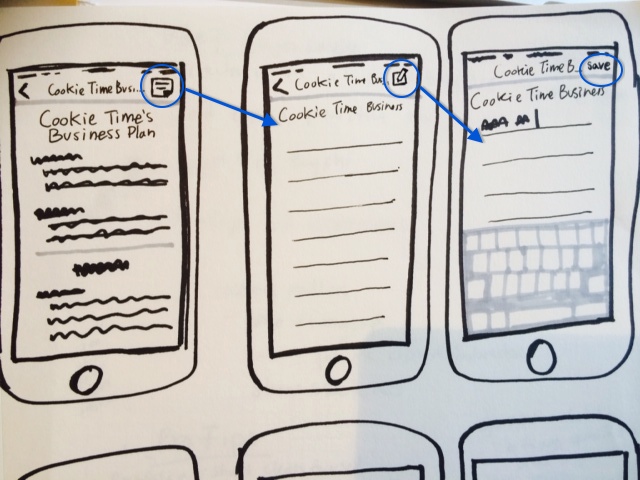 Cookie Time Busi...
Cookie Time's
Business Plan
Cookie Time Bus..
Cookie Time Business
Cookie Time B..
save
Cookie Time Business